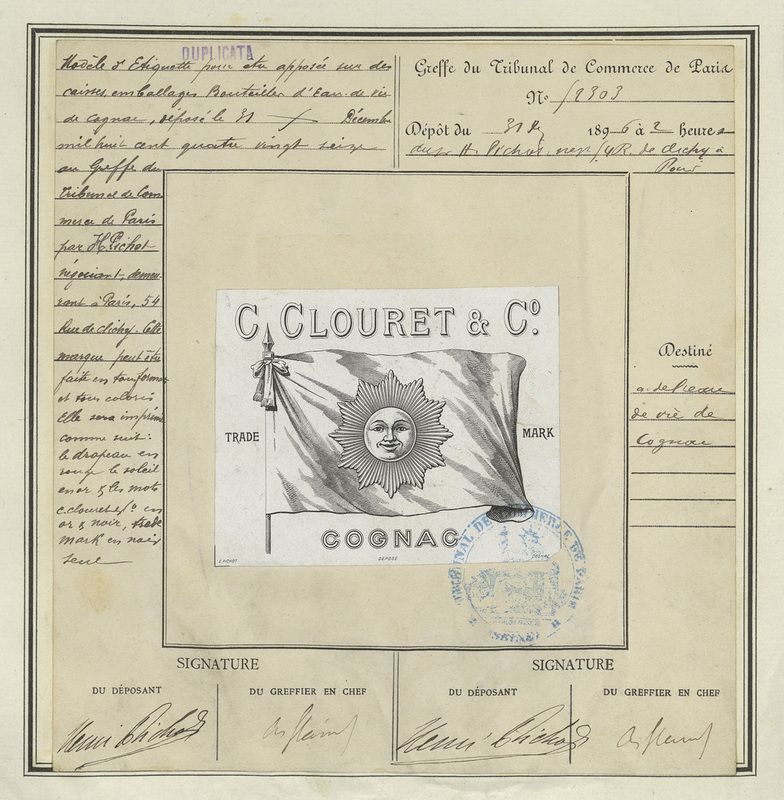 DUPLICATA
Modèle d'Etiquette pour etre apposée sur des
caisses, emballages Bouteilles d'Eau-de-vie
de cognac, déposé le 31 Décembre
mil huit cent quatre vingt seize
au Greffe du
Tribunal de Com
merce de Paris
par H. Pichot
négociant, demeu
rant à Paris, 54
Rue de Clichy. Cette
marque peut être
faite en tous formats
et tous coloris
Elle sera imprimée
comme suit:
le drapeau en
rouge le soleil
en or & les mots
C. Clouret & Co en
or & noir, trade
mark en noir
seul
Greffe du Tribunal de Commerce de Paris
No
Dépôt du 31 1896 à 2 heures
H. Pichot, R. de Clichy à
Paris
C. CLOURET & Co.
TRADE MARK
COGNAC
DEPOSE
TRIBUNAL DE COMMERCE DE PARIS
Destiné
à de l'eau
de vie de
Cognac
SIGNATURE
DU DÉPOSANT
DU GREFFIER EN CHEF
Henri Pichot
SIGNATURE
DU DÉPOSANT
DU GREFFIER EN CHEF
Henri Pichot